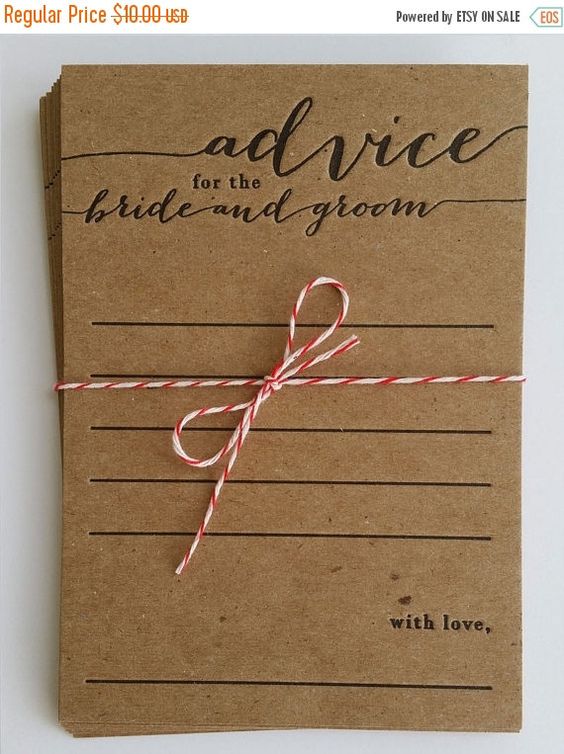 Regular Price $10.00 USD
Powered by ETSY ON SALE EOS
advice
for the
bride and groom
with love,